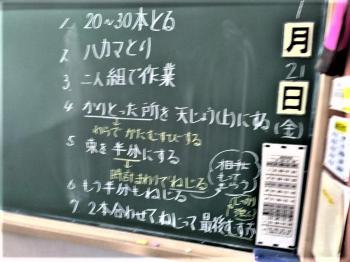 1. 20~30本とる
2. ハカマとり
3. 二人組で作業
4. かりとった所を天じょう(上)にする
わらでかたむすびする
5. 束を半分にする
時計まわりでねじる
6. もう半分もねじる
相手にもってもらう
7. 2本合わせてねじって最後むすぶ
月
21
日
(金)